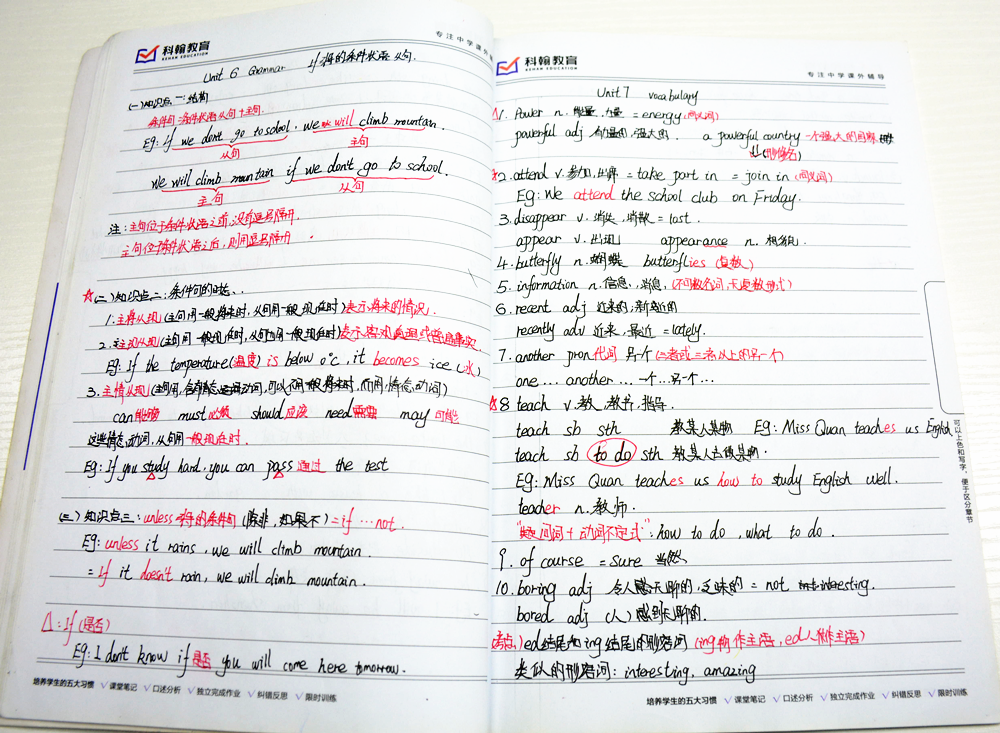 科翰教育
KEHAN EDUCATION
专注中学课外辅
Unit 6 Grammar if 引导的条件状语从句.
(一)知识点一:结构
条件句:条件状语从句+主句.
Eg: if we don't go to school, we will climb mountain.
从句 主句
we will climb mountain if we don't go to school.
主句 从句
注:主句位于条件状语之前,没有逗号隔开
主句位于条件状语之后,则用逗号隔开.
☆(二)知识点二:条件句的时态.
1.主将从现(主句用一般将来时,从句用一般现在时)表示将来的情况.
2.主现从现(主句用一般现在时,从句用一般现在时)表示客观真理或
Eg: If the temperature(温度) is below 0℃, it becomes ice(冰)
3.主情从现(主句用含有情态动词,可以不用一般将来时,而用情态动词)
can能够 must必须 should应该 need需要 may可能
这些情态动词,从句用一般现在时.
Eg: If you study hard, you can pass通过 the test
(三)知识点三:unless引导的条件句(除非,如果不)=if…not.
Eg: unless it rains, we will climb mountain.
=If it doesn't rain, we will climb mountain.
△:if(是否)
Eg: I don't know if是否 you will come here tomorrow.
培养学生的五大习惯 √课堂笔记 √口述分析 √独立完成作业 √纠错反思 √限时训练
科翰教育
KEHAN EDUCATION
专注中学课外辅导
Unit 7 vocabulary
△1. Power n. 能量,力量 =energy(同义词)
powerful adj 有力量的,强大的. a powerful country 一个强大的国家
↓(形修名)
☆2. attend v. 参加,出席 =take part in =join in(同义词)
Eg: We attend the school club on Friday.
3. disappear v. 消失,消散 =lost.
appear v. 出现 appearance n. 相貌.
4. butterfly n. 蝴蝶 butterflies (复数)
5. information n. 信息,消息,(不可数名词,无复数形式)
6. recent adj 近来的,新近的
recently adv 近来,最近 =lately.
7. another pron代词 另个(三者或三者以上的另一个)
one... another... 一个...另一个...
☆8 teach v. 教,教书,指导.
teach sb sth 教某人某物 Eg: Miss Quan teaches us English
teach sb to do sth 教某人去做某物.
Eg: Miss Quan teaches us how to study English well.
teacher n. 教师.
"疑问词+动词不定式": how to do, what to do.
9. of course =sure 当然
10. boring adj 令人感无聊的,乏味的 = not interesting.
bored adj (人)感到无聊的.
(考点)ed结尾和ing结尾的形容词 (ing物作主语,ed人作主语)
类似的形容词: interesting, amazing
可以上色和写字,便于区分章节
培养学生的五大习惯 √课堂笔记 √口述分析 √独立完成作业 √纠错反思 √限时训练